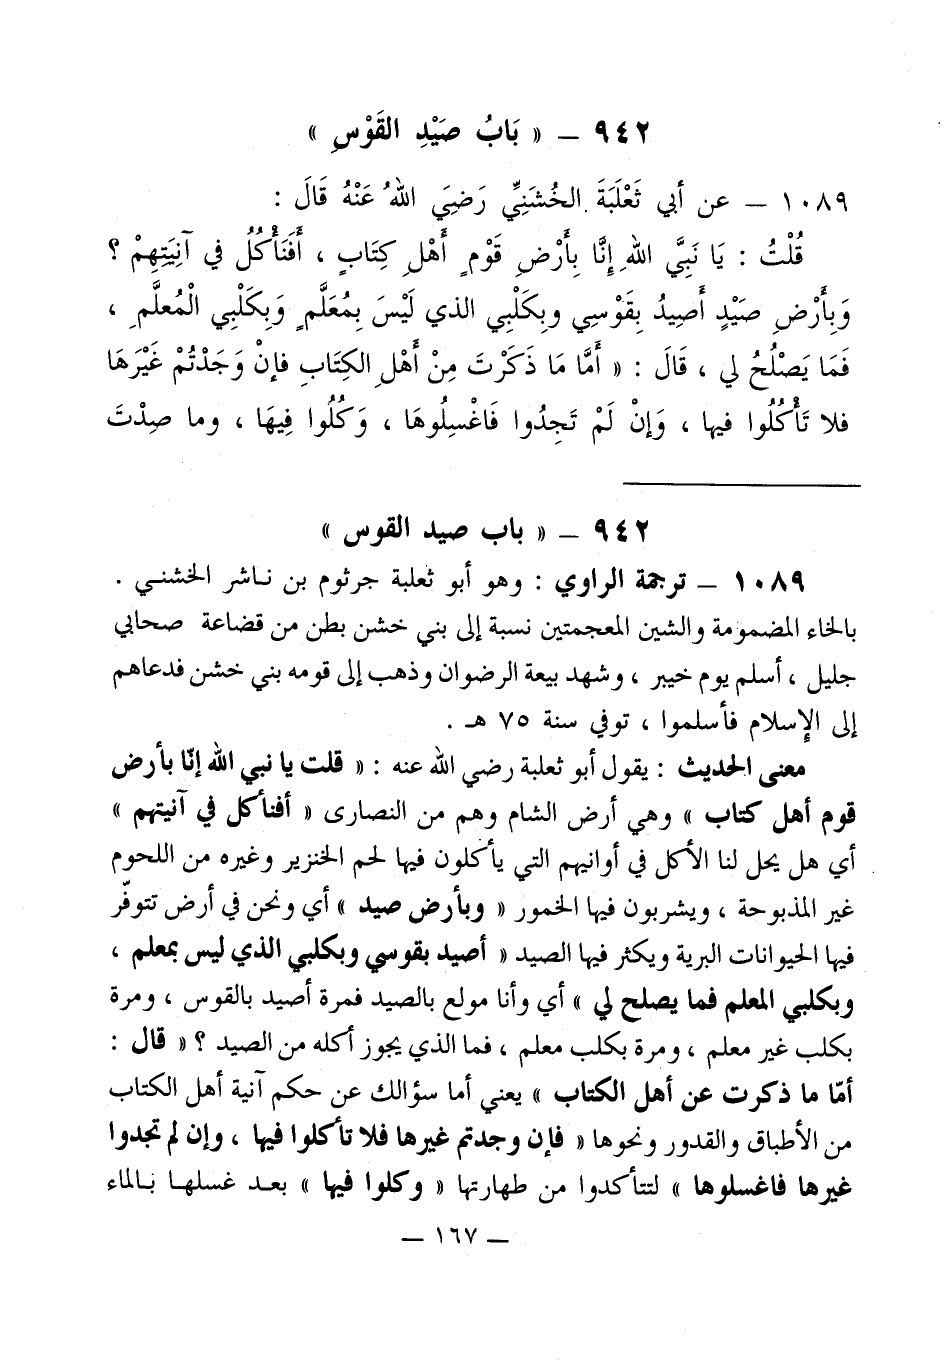 ٩٤٢ – « بَابُ صَيْدِ القَوْسِ »
١٠٨٩ – عن أبي ثَعْلَبَةَ الخُشَنِيِّ رَضِيَ اللهُ عَنْهُ قَالَ :
قُلْتُ : يَا نَبِيَّ اللهِ إِنَّا بِأَرْضِ قَوْمٍ أَهْلِ كِتَابٍ ، أَفَنَأْكُلُ في آنِيَتِهِمْ ؟
وَبِأَرْضِ صَيْدٍ أَصِيدُ بِقَوْسِي وبِكَلْبِي الذي لَيْسَ بِمُعَلَّمٍ وَبِكَلْبِي الْمُعلَّمِ ،
فَمَا يَصْلُحُ لي ، قَالَ : « أَمَّا مَا ذَكَرْتَ مِنْ أَهْلِ الكِتَابِ فإنْ وَجَدْتُمْ غَيْرَهَا
فلا تَأْكُلُوا فيها ، وَإِنْ لَمْ تَجِدُوا فَاغْسِلُوهَا ، وَكُلُوا فِيهَا ، وما صِدْتَ
٩٤٢ – « باب صيد القوس »
١٠٨٩ – ترجمة الراوي : وهو أبو ثعلبة جرثوم بن ناشر الخشني .
بالخاء المضمومة والشين المعجمتين نسبة إلى بني خشن بطن من قضاعة صحابي
جليل ، أسلم يوم خيبر ، وشهد بيعة الرضوان وذهب إلى قومه بني خشن فدعاهم
إلى الإسلام فأسلموا ، توفي سنة ٧٥ هـ .
معنى الحديث : يقول أبو ثعلبة رضي الله عنه : « قلت يا نبي الله إنّا بأرض
قوم أهل كتاب » وهي أرض الشام وهم من النصارى « أفنأكل في آنيتهم »
أي هل يحل لنا الأكل في أوانيهم التي يأكلون فيها لحم الخنزير وغيره من اللحوم
غير المذبوحة ، ويشربون فيها الخمور « وبأرض صيد » أي ونحن في أرض تتوفّر
فيها الحيوانات البرية ويكثر فيها الصيد « أصيد بقوسي وبكلبي الذي ليس بمعلم ،
وبكلبي المعلم فما يصلح لي » أي وأنا مولع بالصيد فمرة أصيد بالقوس ، ومرة
بكلب غير معلم ، ومرة بكلب معلم ، فما الذي يجوز أكله من الصيد ؟ « قال :
أمّا ما ذكرت عن أهل الكتاب » يعني أما سؤالك عن حكم آنية أهل الكتاب
من الأطباق والقدور ونحوها « فإن وجدتم غيرها فلا تأكلوا فيها ، وإن لم تجدوا
غيرها فاغسلوها » لتتأكدوا من طهارتها « وكلوا فيها » بعد غسلها بالماء
– ١٦٧ –